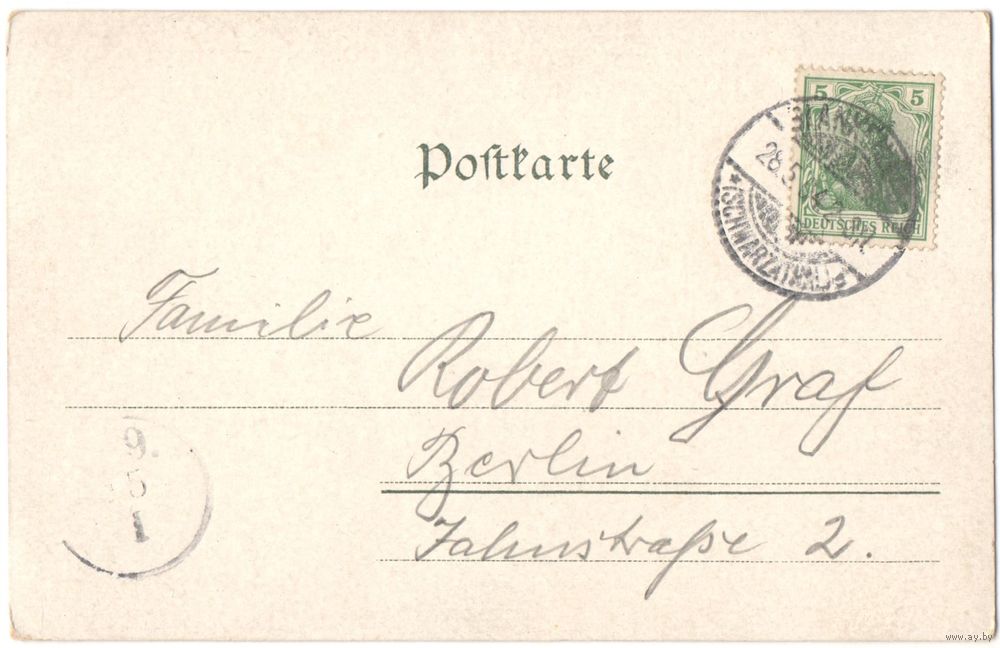 Postkarte
5 5
DEUTSCHES REICH
(SCHWARZATHAL)
Familie
Robert Graf
Berlin
Jahnstraße 2.
9.
5
1
www.ay.by